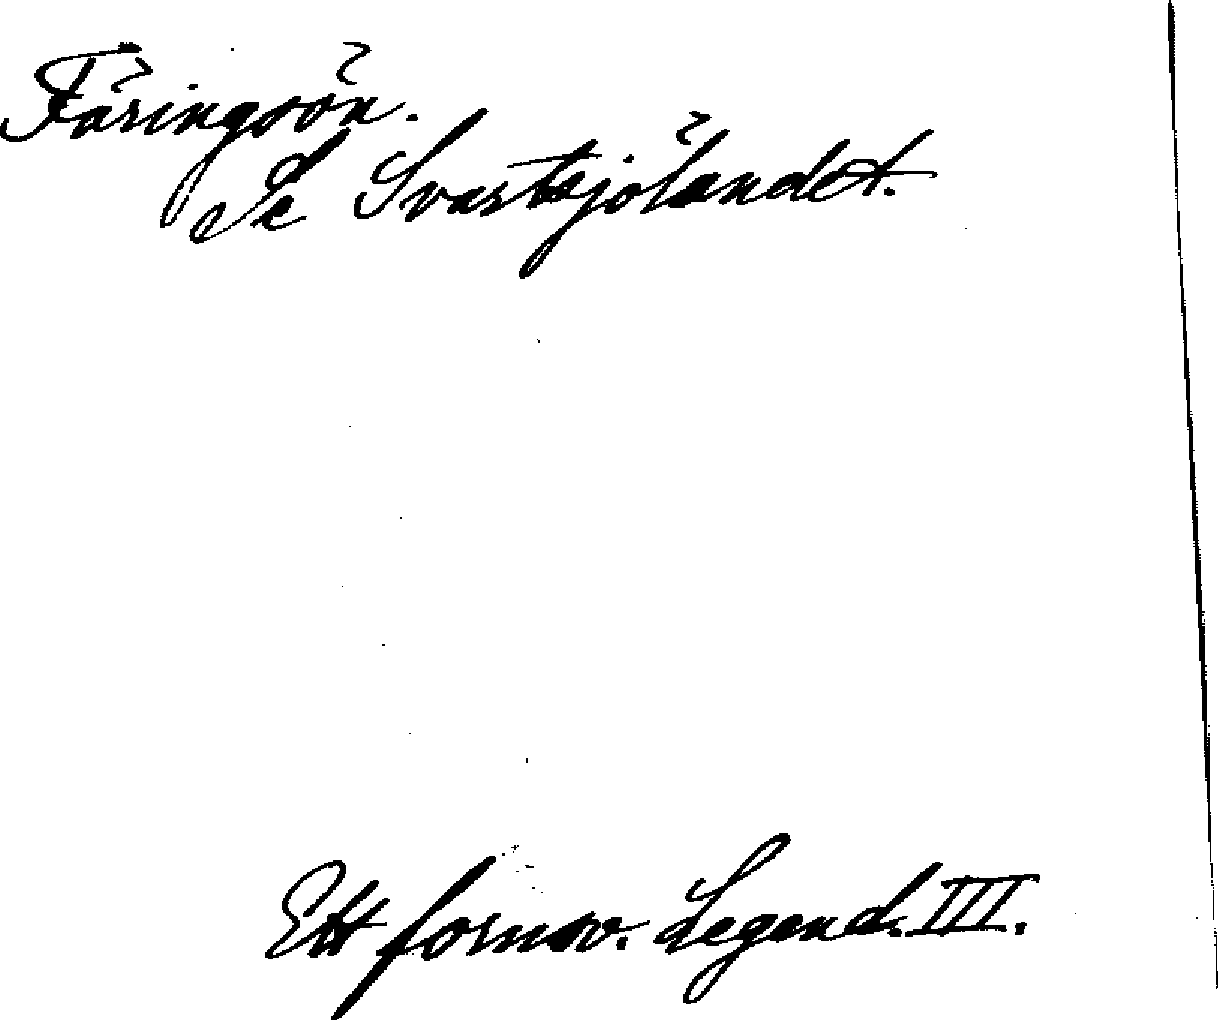 Färingsön.
Se Svartsjölandet.
Ett fornsv. Legend. III.